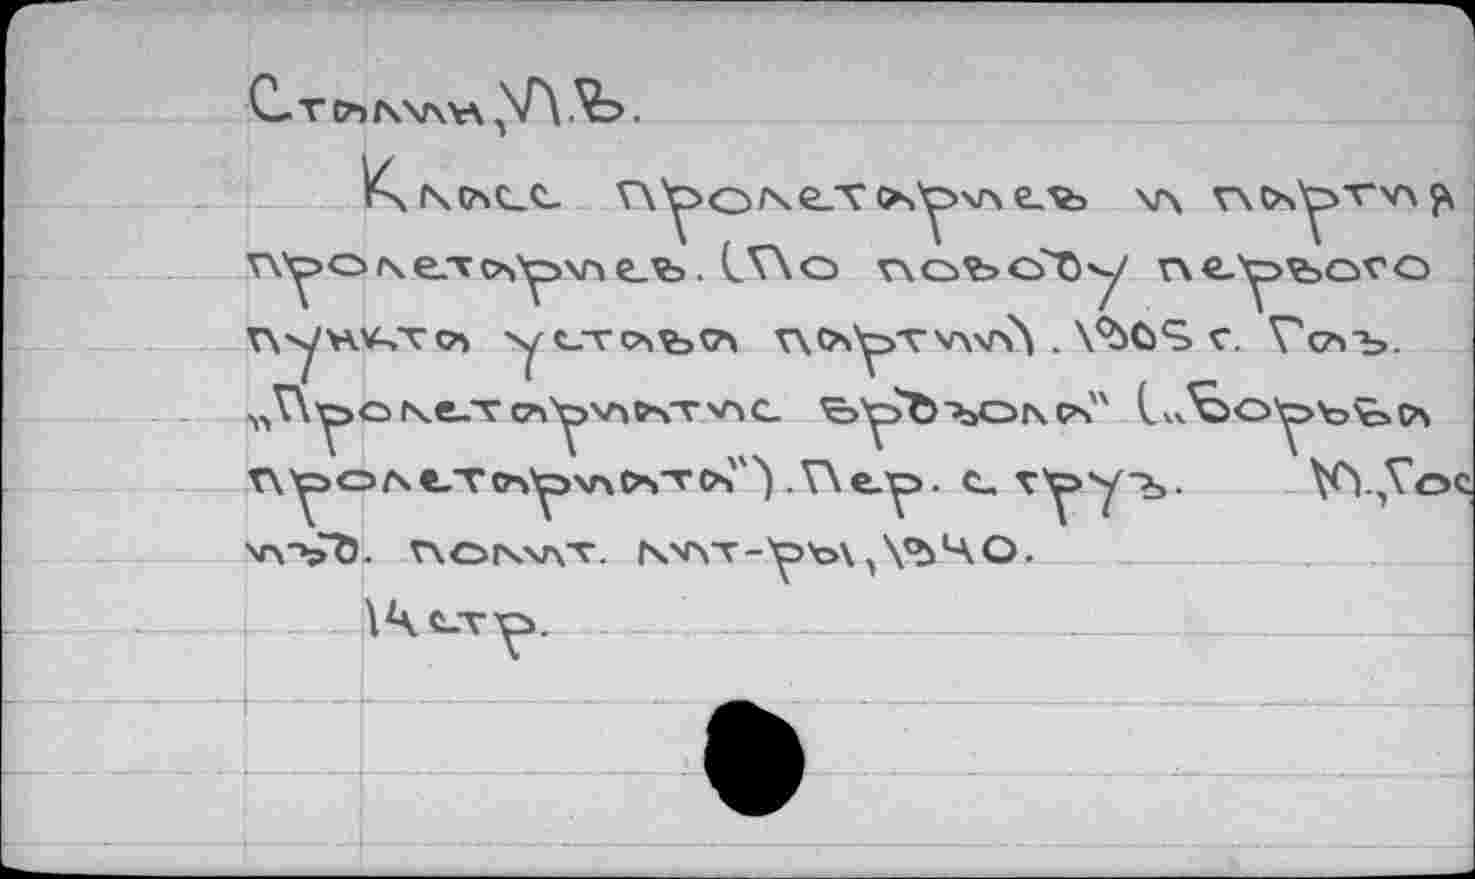 Сталин, И.В.
Класс пролетариев и партия
пролетариев. (По поводу первого
пункта устава партии). 1905 г. Газ.
„Пролетариатис брдзола" („Борьба
пролетариата"). Пер. с груз. М., Гос
изд. полит. лит-ры, 1940.
14 стр.